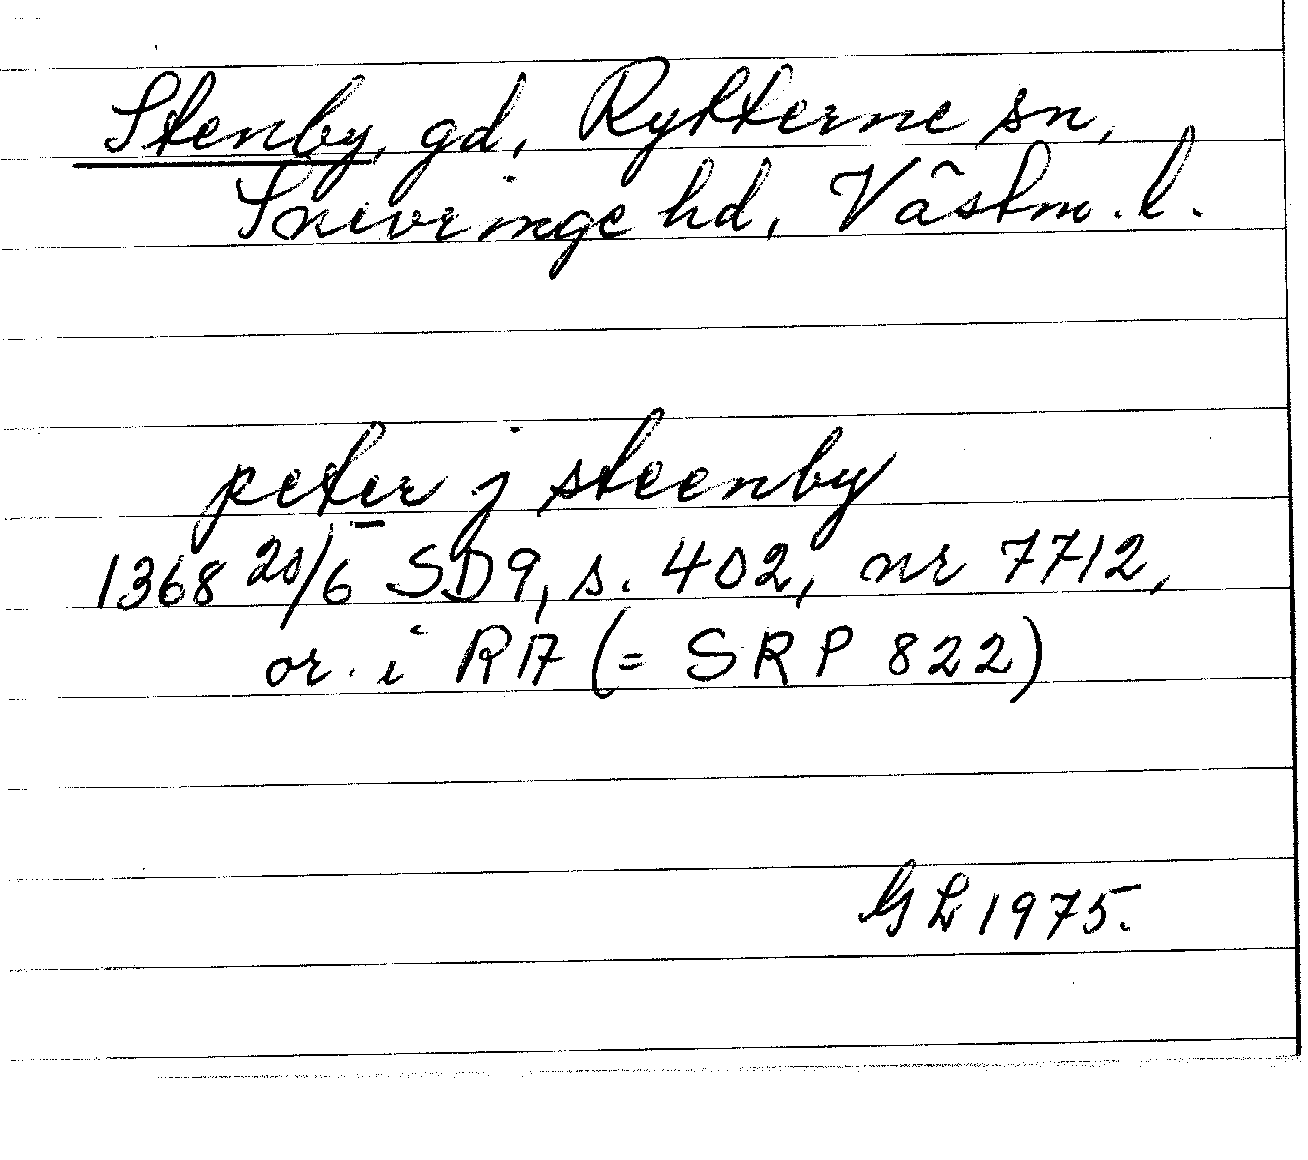 Stenby, gd, Rytterne sn,
Snevringe hd, Västm. l.
peter j steenby
1368 20/6 SD9, s. 402, nr 7712,
or. i RA (= SRP 822)
GL 1975.